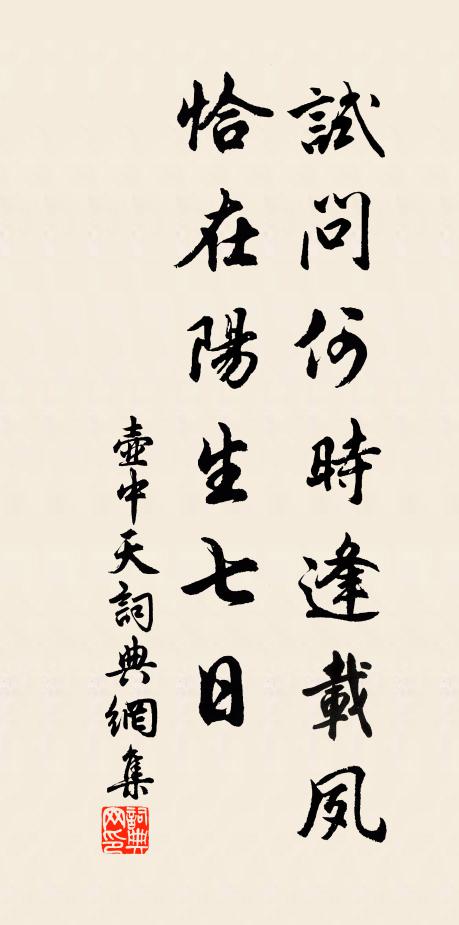 試問何時逢載夙
恰在陽生七日
壺中天詞典網集
詞典网印